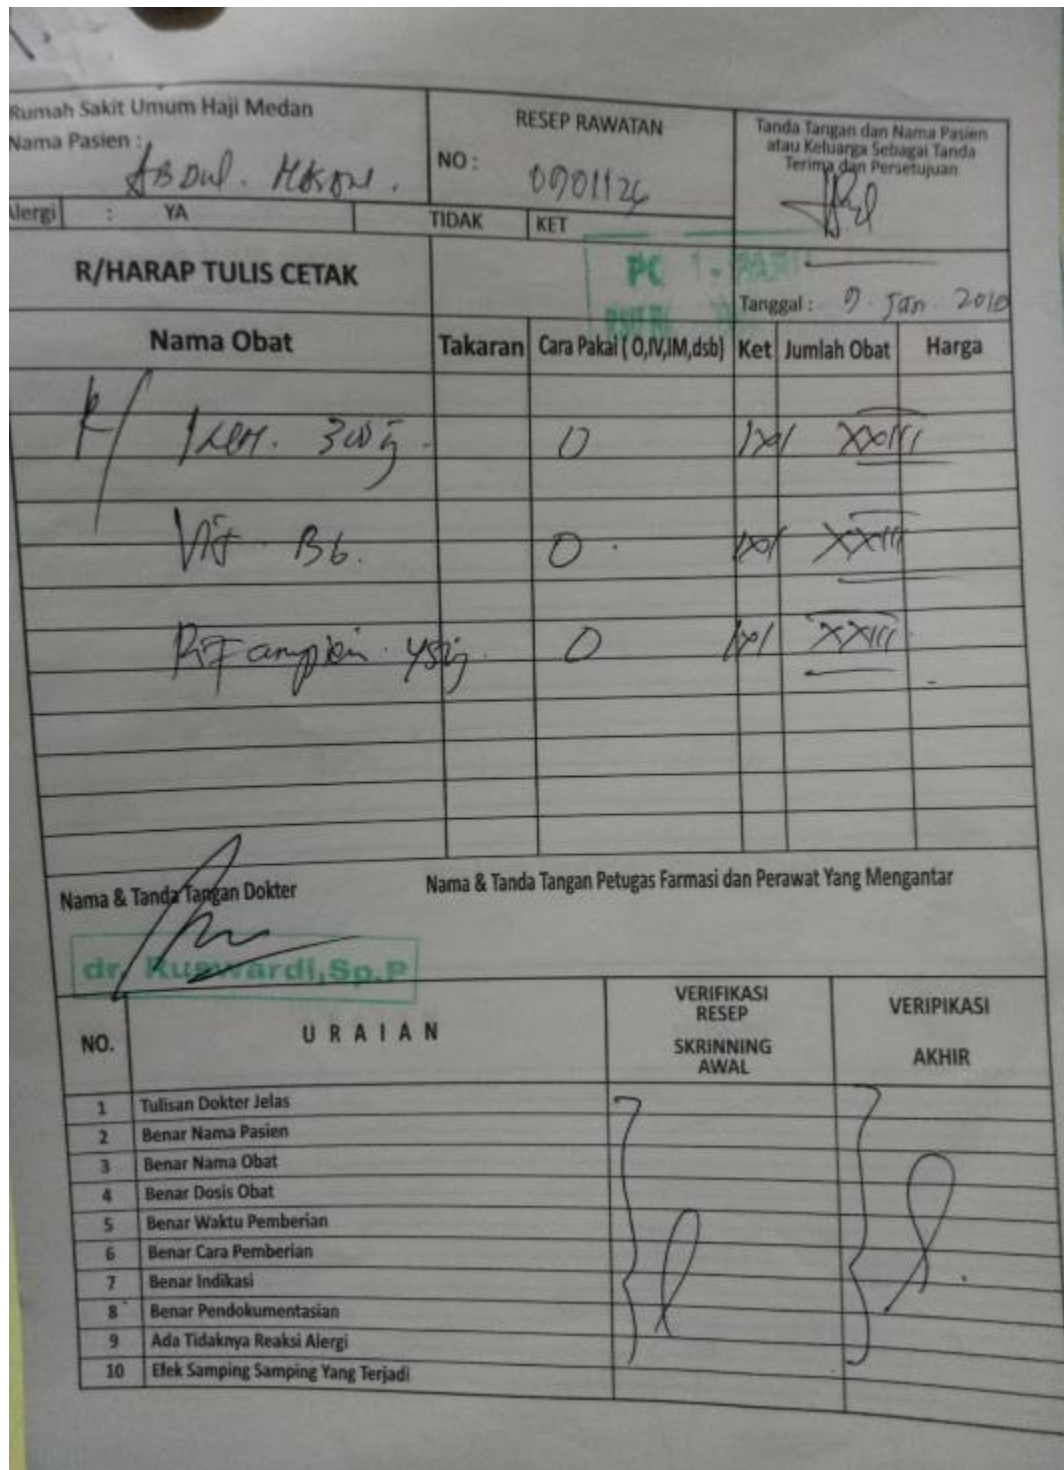 Rumah Sakit Umum Haji Medan
Nama Pasien :
RESEP RAWATAN
NO :
Tanda Tangan dan Nama Pasien
atau Keluarga Sebagai Tanda
Terima dan Persetujuan
Alergi : YA TIDAK KET
R/HARAP TULIS CETAK
Tanggal : 9 Jan 2010
Nama Obat Takaran Cara Pakai ( O,IV,IM,dsb) Ket Jumlah Obat Harga
R/ O 1x1 XXIII
Vit B6. O 1x1 XXIII
Rifampicin O 1x1 XXIII
Nama & Tanda Tangan Dokter
Nama & Tanda Tangan Petugas Farmasi dan Perawat Yang Mengantar
dr. Kuswardi,Sp.P
NO. U R A I A N
VERIFIKASI
RESEP
SKRINNING
AWAL
VERIPIKASI
AKHIR
1 Tulisan Dokter Jelas
2 Benar Nama Pasien
3 Benar Nama Obat
4 Benar Dosis Obat
5 Benar Waktu Pemberian
6 Benar Cara Pemberian
7 Benar Indikasi
8 Benar Pendokumentasian
9 Ada Tidaknya Reaksi Alergi
10 Efek Samping Samping Yang Terjadi